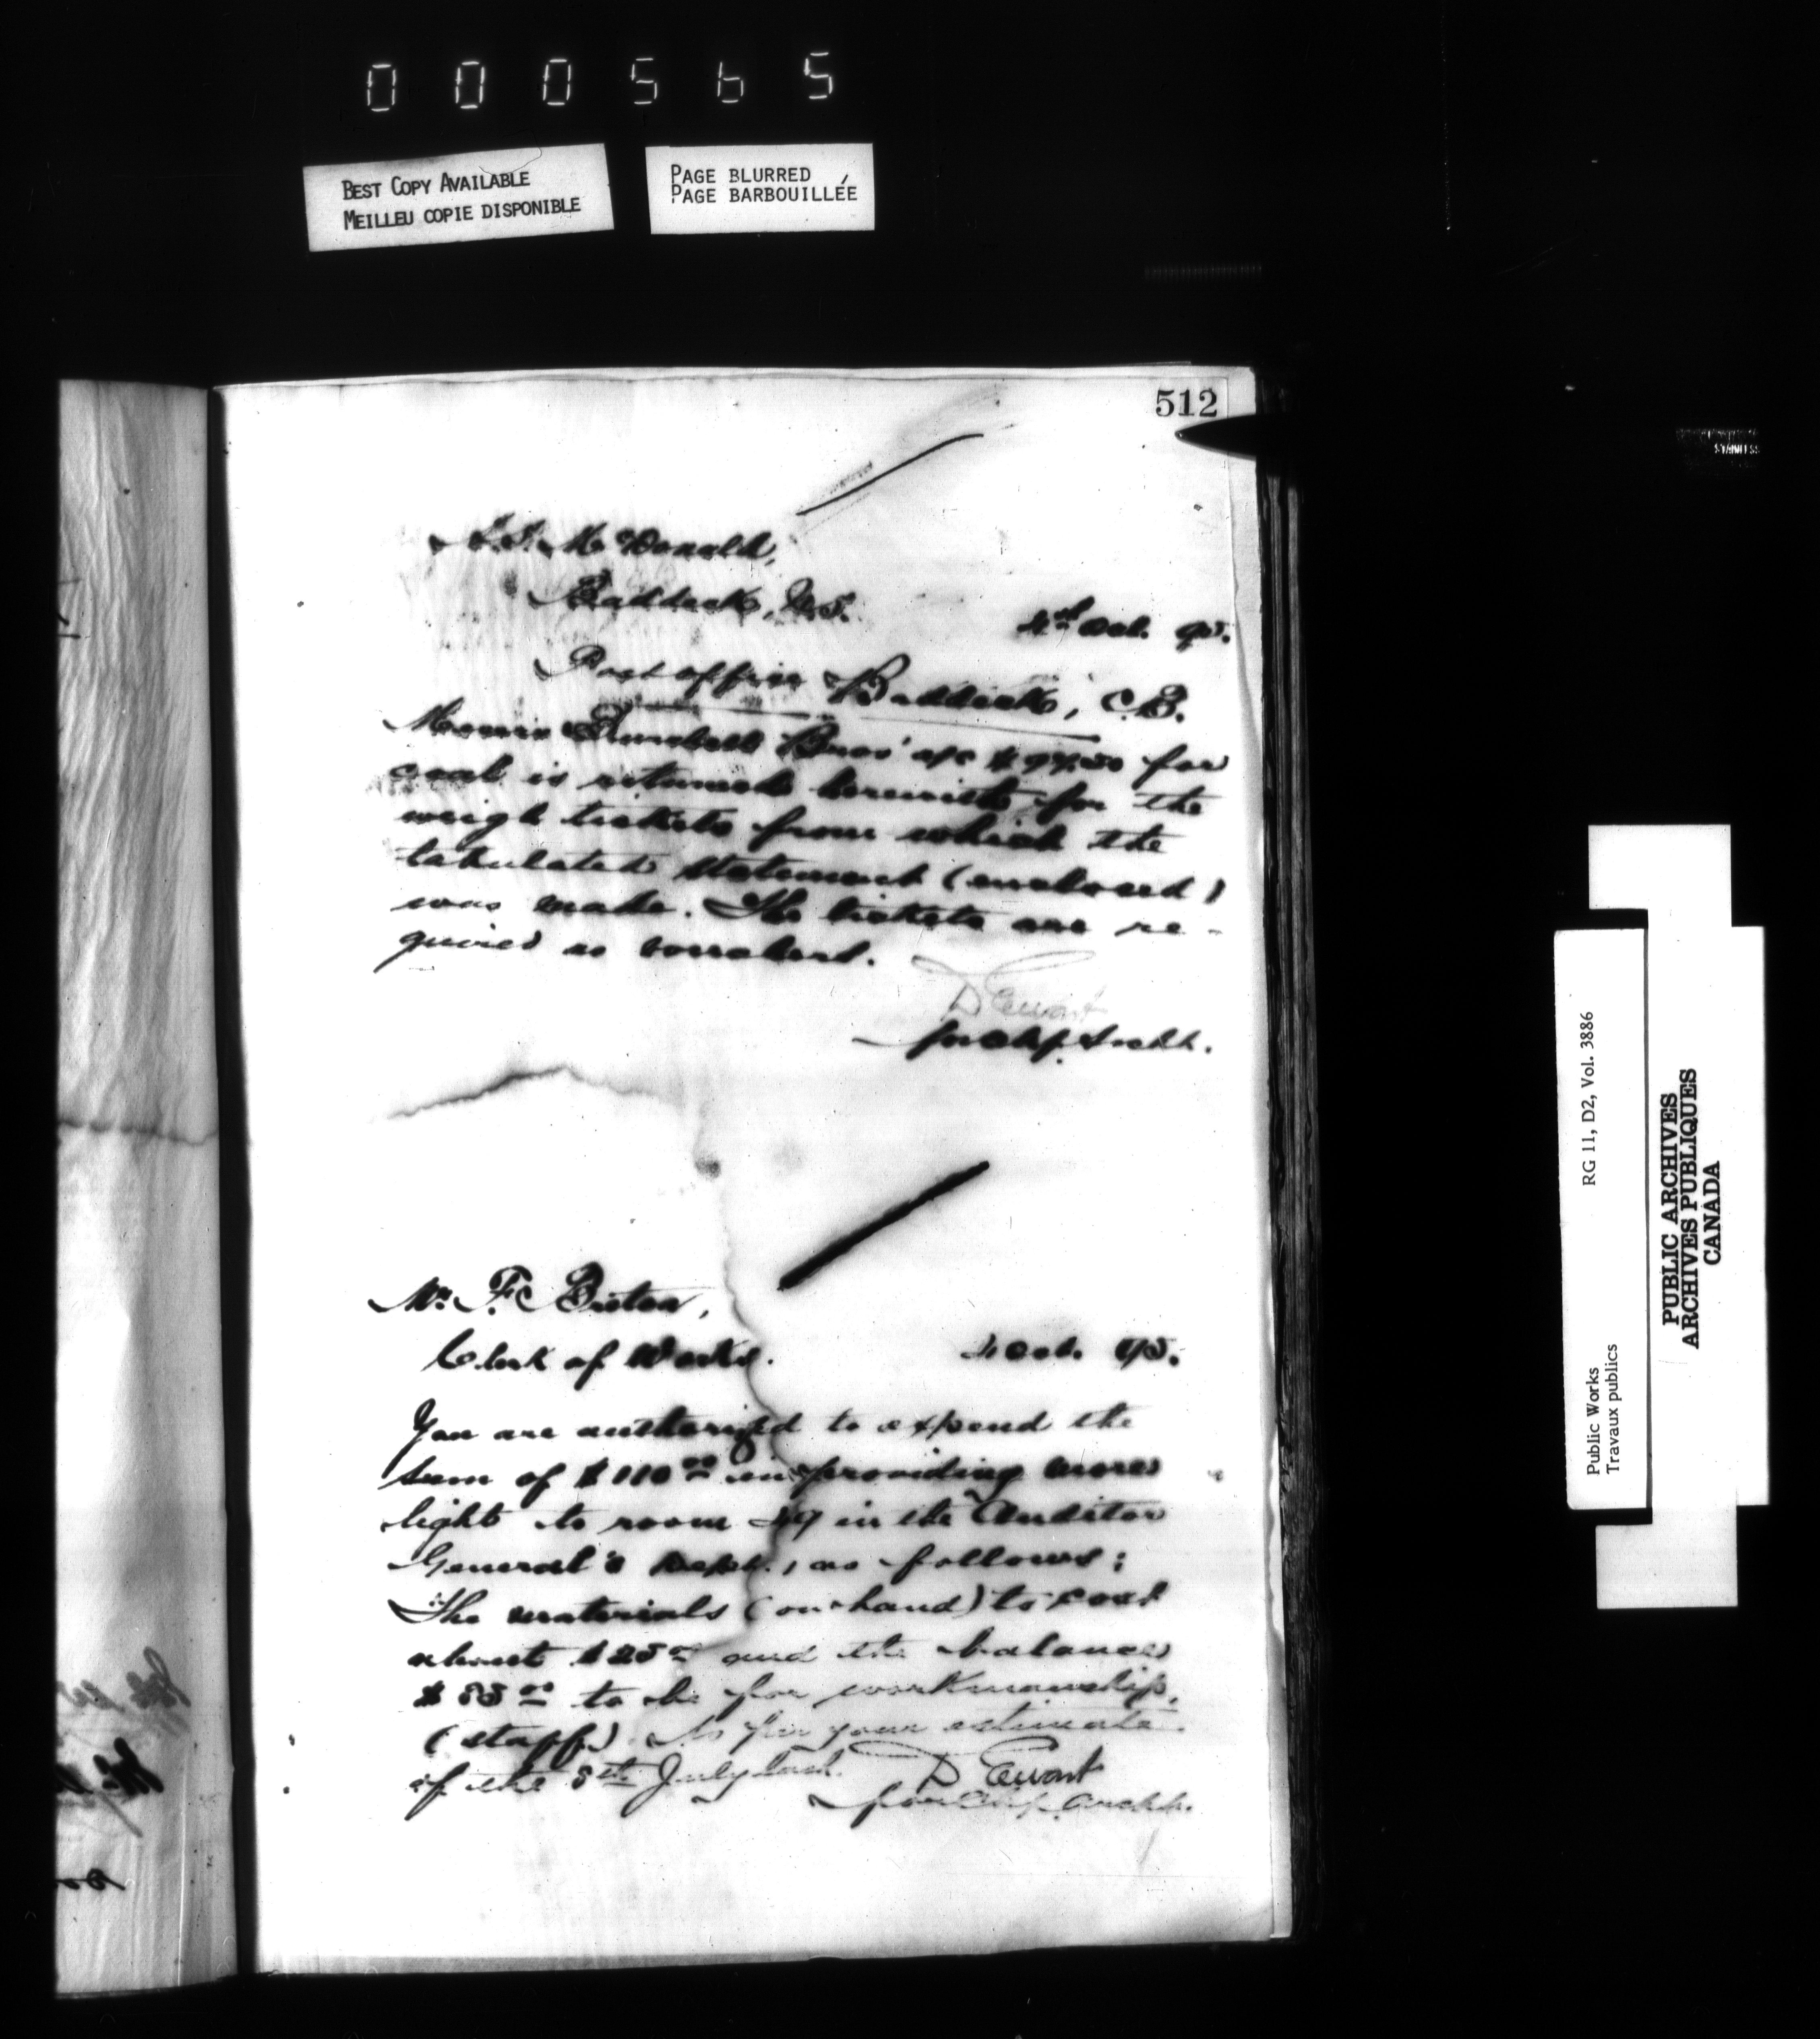 000565
BEST COPY AVAILABLE
MEILLEU COPIE DISPONIBLE
PAGE BLURRED
PAGE BARBOUILLÉE
512
McDonald,
Baddeck, N.S.
4th Oct. 95.
Post office Baddeck, C.B.
Bros' a/c for
coal is returned herewith for the
weigh tickets from which the
tabulated statement (enclosed)
was made. The tickets are re-
quired as vouchers.
D Ewart
for Chf. Archt.
Mr. F.
Clerk of Works.
4 Oct. 95.
You are authorized to expend the
sum of $110 00 in providing more
light to room 49 in the Auditor
General's Dept., as follows:
The materials (on hand) to cost
about $25 and the balance
$85 00 to be for workmanship,
(staff). As per your estimate
of the 5th July last.
D Ewart
for Chf. Archt.
Public Works
Travaux publics
RG 11, D2, Vol. 3886
PUBLIC ARCHIVES
ARCHIVES PUBLIQUES
CANADA